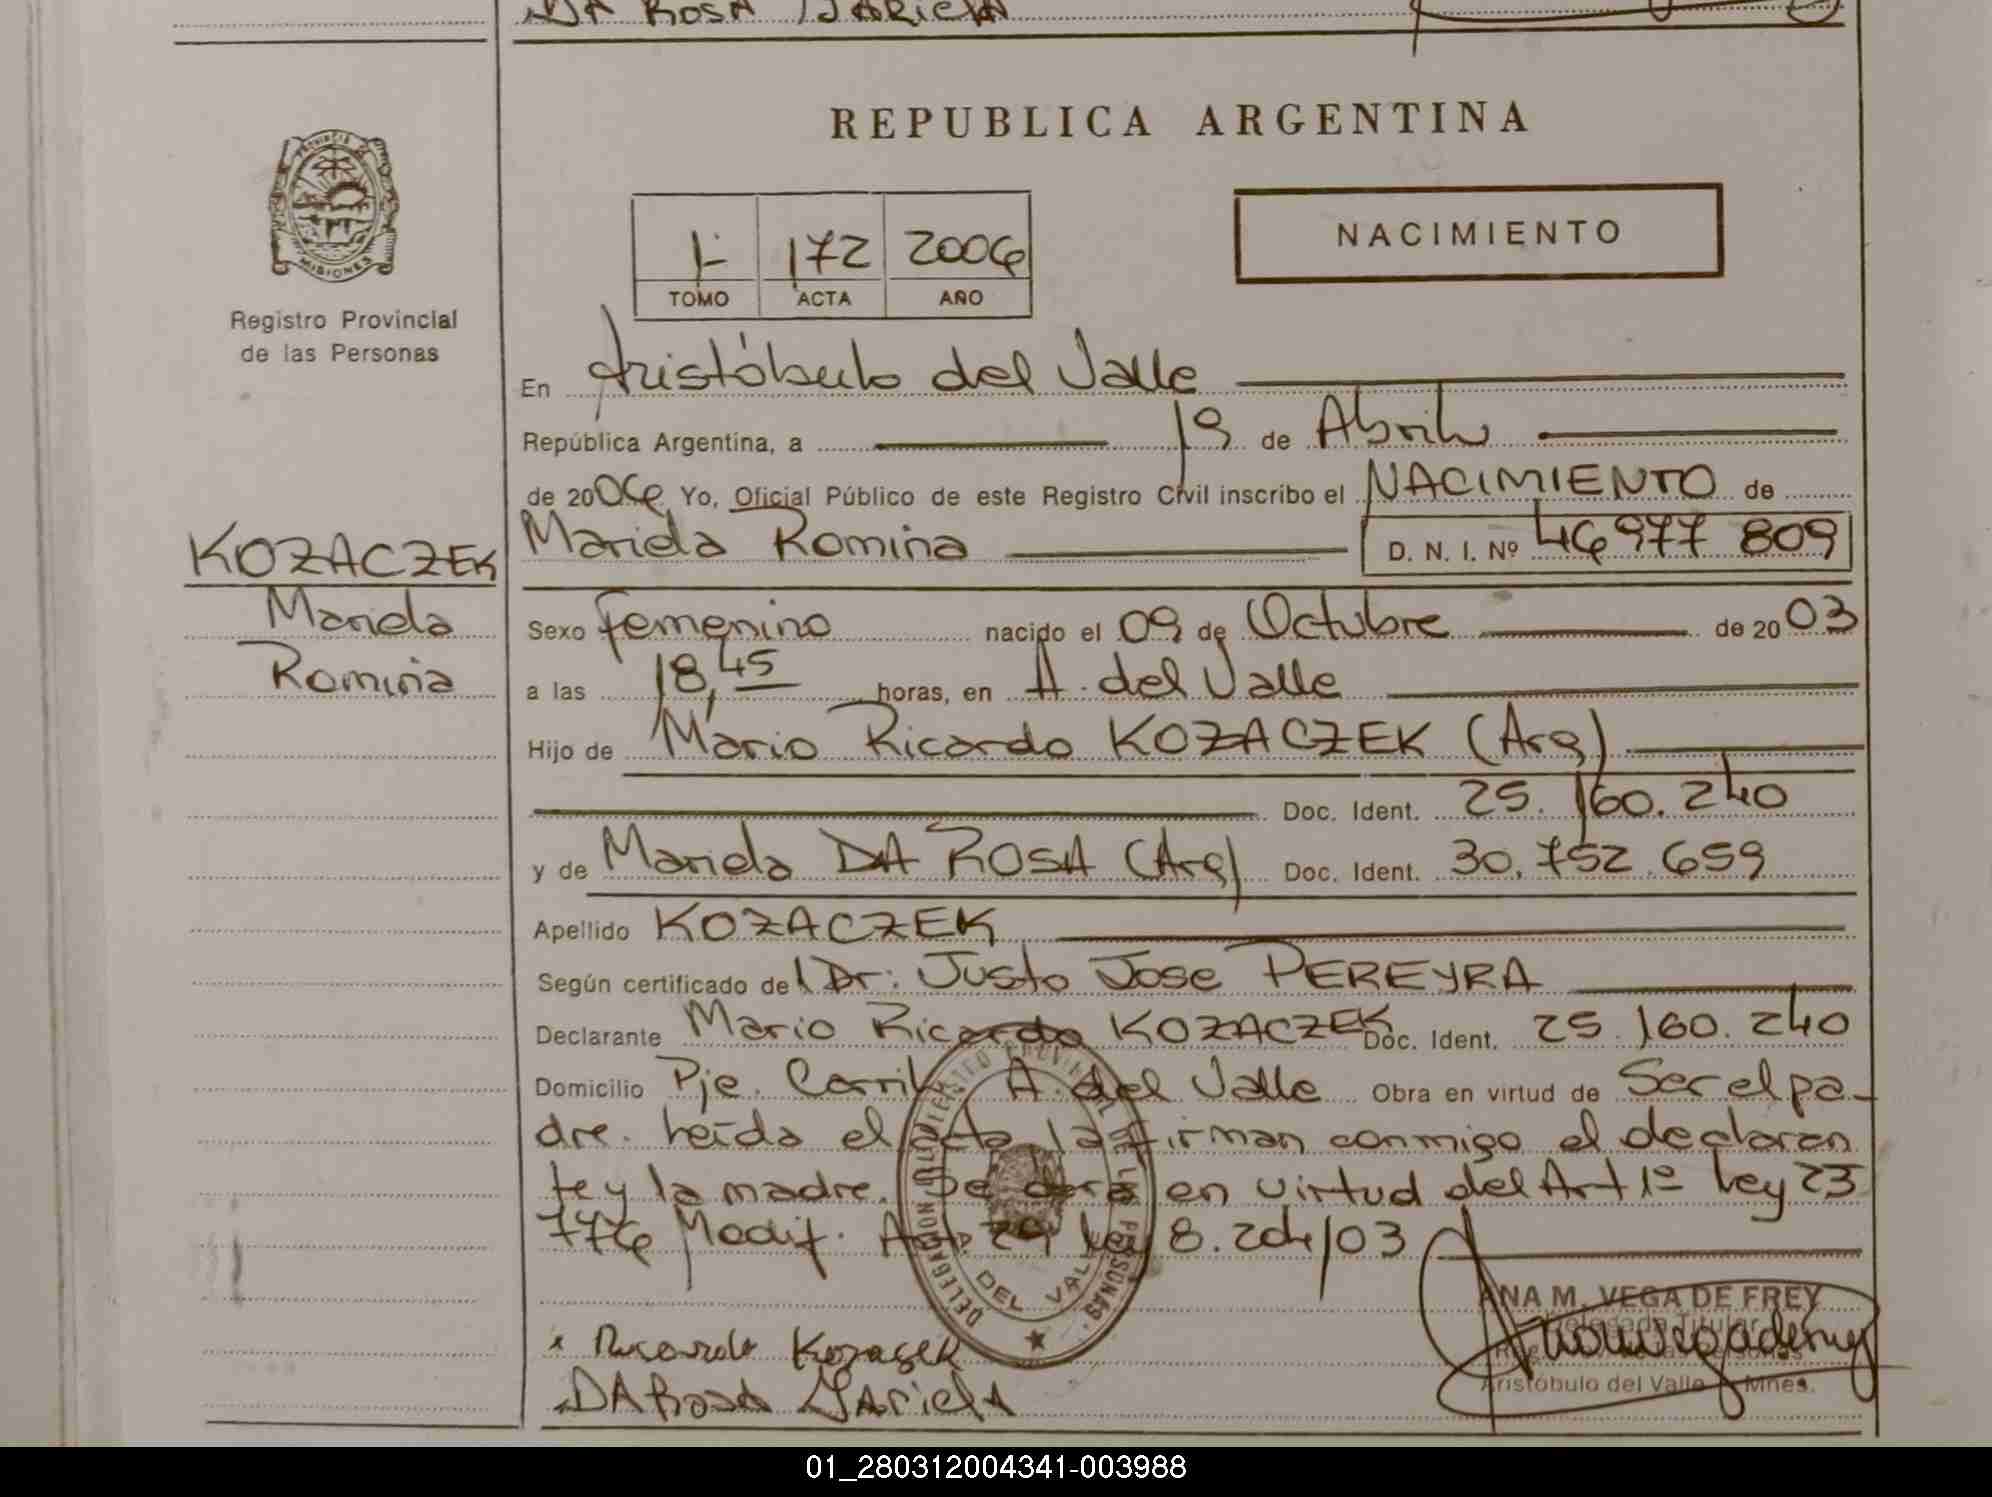 DA ROSA MARIELA
REPUBLICA ARGENTINA
PROVINCIA DE
MISIONES
Registro Provincial
de las Personas
1- 172 2006
TOMO ACTA AÑO
NACIMIENTO
En Aristóbulo del Valle
República Argentina, a 19 de Abril
de 2006 Yo, Oficial Público de este Registro Civil inscribo el NACIMIENTO de
KOZACZEK
Mariela
Romina
Mariela Romina D. N. I. Nº 46 977 809
Sexo femenino nacido el 09 de Octubre de 2003
a las 18,45 horas, en A. del Valle
Hijo de Mario Ricardo KOZACZEK (Arg)
Doc. Ident. 25.160.240
y de Mariela DA ROSA (Arg) Doc. Ident. 30.752.659
Apellido KOZACZEK
Según certificado del Dr: Justo Jose PEREYRA
Declarante Mario Ricardo KOZACZEK Doc. Ident. 25.160.240
Domicilio Pje. Carril A. del Valle Obra en virtud de Ser el pa-
dre. Leída el acta la firman conmigo el declaran
te y la madre. Se obra en virtud del Art 1º Ley 23
776 Modif. Art. 29 Ley 8.204/03
DELEGACION REGISTRO PROVINCIAL DE LAS PERSONAS
DEL VALLE
ANA M. VEGA DE FREY
Delegada Titular
Aristóbulo del Valle Mnes.
x Ricardo Kozasek
DA Rosa MARiElA
01_280312004341-003988